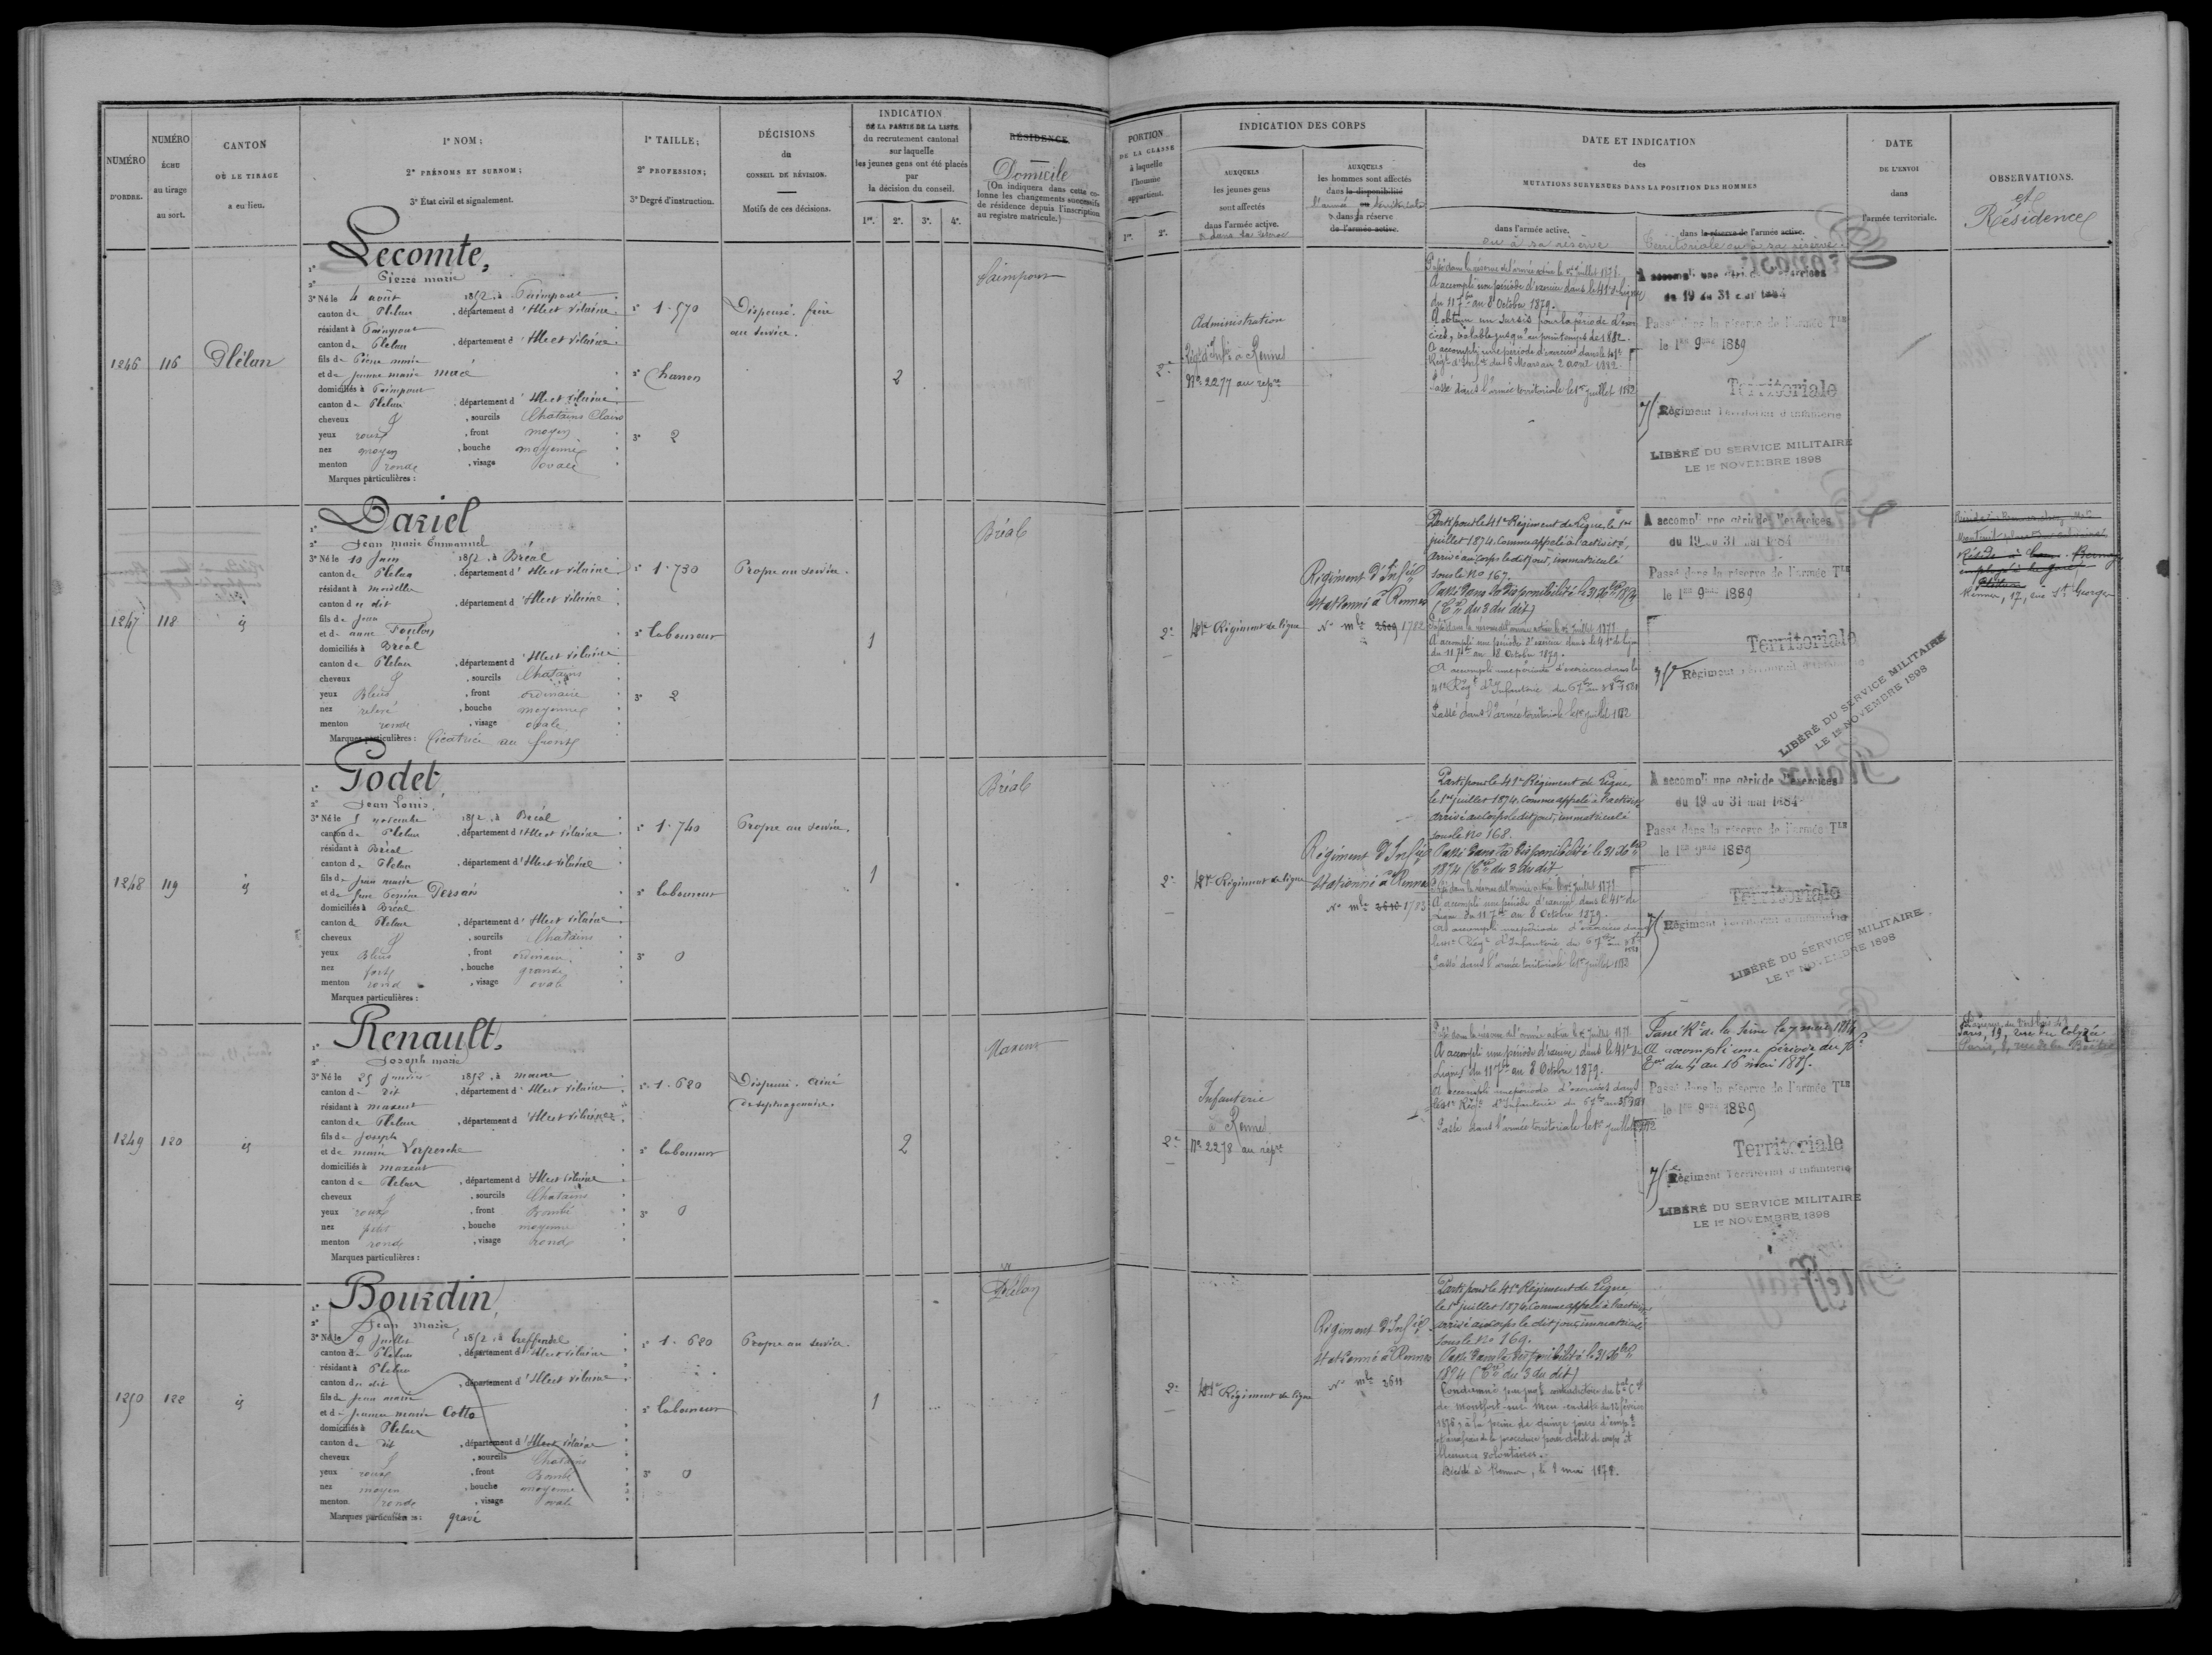 NUMÉRO
D'ORDRE.
NUMÉRO
ÉCHU
au tirage
au sort.
CANTON
OÙ LE TIRAGE
a eu lieu.
1º NOM;
2º PRÉNOMS ET SURNOM;
3º État civil et signalement.
1º TAILLE;
2º PROFESSION;
3º Degré d'instruction.
DÉCISIONS
du
CONSEIL DE RÉVISION.
Motifs de ces décisions.
INDICATION
DE LA PARTIE DE LA LISTE
du recrutement cantonal
sur laquelle
les jeunes gens ont été placés
par
la décision du conseil.
1re. 2e. 3e. 4e.
RÉSIDENCE
Domicile
(On indiquera dans cette co-
lonne les changements successifs
de résidence depuis l'inscription
au registre matricule.)
PORTION
DE LA CLASSE
à laquelle
l'homme
appartient.
1re. 2e.
INDICATION DES CORPS
AUXQUELS
les jeunes gens
sont affectés
dans l'armée active.
& dans la réserve
AUXQUELS
les hommes sont affectés
dans la disponibilité
l'armée territoriale
& dans sa réserve
de l'armée active.
DATE ET INDICATION
des
MUTATIONS SURVENUES DANS LA POSITION DES HOMMES
dans l'armée active.
ou à sa réserve
dans la réserve de l'armée active.
Territoriale ou à sa réserve
DATE
DE L'ENVOI
dans
l'armée territoriale.
OBSERVATIONS.
et
Résidence
1246 116 Plélan
Lecomte,
Pierre marie
3º Né le 4 août 1852, à Paimpont
canton de Plelan, département d'Ille et Vilaine
résidant à Paimpont
canton de Plelan, département d'Ille et Vilaine
fils de Pierre marie
et de Jeanne marie macé
domiciliés à Paimpont
canton de Plelan, département d'Ille et Vilaine
cheveux &, sourcils Chatains Clairs
yeux roux, front moyen
nez moyen, bouche moyenne
menton ronde, visage ovale
Marques particulières :
1º 1.570
3º 2
Dispensé. frère
au service.
2
Paimpont
2e
Administration
Régt d'Infie à Rennes
Nº 2277 au répre
Passé dans la réserve de l'armée active le 1er juillet 1877.
A accompli une période d'exercice dans le 41e de Ligne
du 11 7bre au 8 Octobre 1879.
A obtenu un sursis pour la période d'exer
cices, valable jusqu'au printemps de 1882.
A accompli une période d'exercices dans le 41e
Passé dans l'armée territoriale le 1er juillet 1882
A accompli une période d'exercices
du 19 au 31 mai 1884
Passé dans la réserve de l'armée Tle
le 1er 9bre 1889
Territoriale
Régiment Territorial d'infanterie
LIBÉRÉ DU SERVICE MILITAIRE
LE 1er NOVEMBRE 1898
1247 118 id
Dariel
Jean marie Emmanuel
3º Né le 10 Juin 1852, à Bréal
canton de Plelan, département d'Ille et Vilaine
résidant à
canton du dit, département d'Ille et Vilaine
fils de Jean
et de anne
domiciliés à Bréal
canton de Plelan, département d'Ille et Vilaine
cheveux &, sourcils Chatains
yeux Bleus, front ordinaire
nez relevé, bouche moyenne
menton ronde, visage ovale
Marques particulières : Cicatrice au front
1º 1.730
2º laboureur
3º 2
Propre au service.
1
Bréal
2e
41e Régiment de ligne
Régiment d'Infie
stationné à Rennes
Nº mle 3609 1782
Parti pour le 41e Régiment de Ligne le 1er
juillet 1874, comme appelé à l'activité,
arrivé au corps le dit jour, immatriculé
sous le Nº 167.
Passé dans la disponibilité le 31 Xbre 1874
(Con du 3 du dit)
Passé dans la réserve de l'armée active le 1er juillet 1877
A accompli une période d'exercice dans le 41e de ligne
du 11 7bre au 8 Octobre 1879.
A accompli une période d'exercices dans le
41e Régt d'Infanterie
Passé dans l'armée territoriale le 1er juillet 1882
A accompli une période d'exercices
du 19 au 31 mai 1884
Passé dans la réserve de l'armée Tle
le 1er 9bre 1889
Territoriale
Régiment
LIBÉRÉ DU SERVICE MILITAIRE
LE 1er NOVEMBRE 1898
Réside à
Rennes, 17, rue St Georges
1248 119 id
Godet,
Jean Louis,
3º Né le 5 novembre 1852, à Bréal
canton de Plelan, département d'Ille et Vilaine
résidant à Bréal
canton de Plelan, département d'Ille et Vilaine
fils de Jean marie
et de
domiciliés à Bréal
canton de Plelan, département d'Ille et Vilaine
cheveux &, sourcils Chatains
yeux Bleus, front ordinaire
nez fort, bouche grande
menton rond, visage ovale
Marques particulières :
1º 1.740
2º laboureur
3º 0
Propre au service.
1
Bréal
2e
41e Régiment de ligne
Régiment d'Infie
stationné à Rennes
Nº mle 3610 1783
Parti pour le 41e Régiment de Ligne
le 1er juillet 1874, comme appelé à l'activité
arrivé au corps le dit jour, immatriculé
sous le Nº 168.
Passé dans la disponibilité le 31 Xbre
1874 (Con du 3 du dit
Passé dans la réserve de l'armée active le 1er juillet 1877
A accompli une période d'exercice dans le 41e de
Ligne du 11 7bre au 8 Octobre 1879.
A accompli une période d'exercices dans
le 41e Régt d'Infanterie
Passé dans l'armée territoriale le 1er juillet 1882
A accompli une période d'exercices
du 19 au 31 mai 1884
Passé dans la réserve de l'armée Tle
le 1er 9bre 1889
Territoriale
Régiment Territorial d'infanterie
LIBÉRÉ DU SERVICE MILITAIRE
LE 1er NOVEMBRE 1898
1249 120 id
Renault,
Joseph marie
3º Né le 25 Janvier 1852, à maxent
canton du dit, département d'Ille et Vilaine
résidant à maxent
canton de Plelan, département d'Ille et Vilaine
fils de Joseph
et de marie Laperche
domiciliés à maxent
canton de Plelan, département d'Ille et Vilaine
cheveux &, sourcils Chatains
yeux roux, front Bombé
nez petit, bouche moyenne
menton rond, visage rond
Marques particulières :
1º 1.620
2º laboureur
3º 0
Dispensé. ainé
de septuagenaire.
2
Maxent
2e
Infanterie
à Rennes
Nº 2278 au répre
Passé dans la réserve de l'armée active le 1er juillet 1877
A accompli une période d'exercice dans le 41e de
Ligne du 11 7bre au 8 Octobre 1879.
A accompli une période d'exercices dans
le 41e Régt d'Infanterie
Passé dans l'armée territoriale le 1er juillet 1882
Passé Rt de la Seine le 7 mars 1884
A accompli une période du
du 4 au 16 mai 1885.
Passé dans la réserve de l'armée Tle
le 1er 9bre 1889
Territoriale
Régiment Territorial d'infanterie
LIBÉRÉ DU SERVICE MILITAIRE
LE 1er NOVEMBRE 1898
Paris, 19, rue du Colysée
Paris, rue de la Boëtie
1250 122 id
Bourdin,
Jean Marie,
3º Né le 9 Juillet 1852, à treffendel
canton de Plelan, département d'Ille et Vilaine
résidant à Plelan
canton du dit, département d'Ille et Vilaine
fils de Jean marie
et de Jeanne marie Cotto
domiciliés à Plelan
canton du dit, département d'Ille et Vilaine
cheveux &, sourcils Chatains
yeux roux, front Bombé
nez moyen, bouche moyenne
menton ronde, visage ovale
Marques particulières : gravé
1º 1.620
2º laboureur
3º 0
Propre au service.
1
Plélan
2e
41e Régiment de ligne
Régiment d'Infie
stationné à Rennes
Nº mle 3611
Parti pour le 41e Régiment de Ligne
le 1er juillet 1874, comme appelé à l'activité
arrivé au corps le dit jour, immatriculé
sous le Nº 169.
Passé dans la disponibilité le 31 Xbre
1874 (Con du 3 du dit)
Condamné par jugt contradictoire du tal Cel
de Montfort-sur-Meu en date du 12 février
1878, à la peine de quinze jours d'empt
et aux frais de la procédure pour délit de coups et
blessures volontaires.
Décédé à Rennes, le 8 mai 1878.